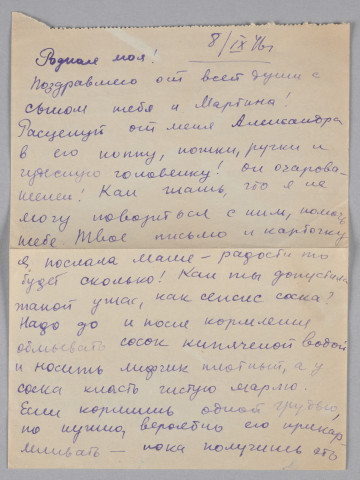 8/IX 46г
Родная моя!
Поздравляю от всей души с
сыном тебя и Мартина!
Расцелуй от меня Александра
в его попку, ножки, ручки и
чудесную головенку! он очарова-
телен! Как жаль, что я не
могу повозиться с ним, помочь
тебе. Твое письмо и карточку
я послала Маше — радости то
будет сколько! Как ты допустила
такой ужас, как сепсис соска?
Надо до и после кормления
обмывать сосок кипяченой водой
и носить лифчик плотный, а у
соска класть чистую марлю.
Если кормишь одной грудью,
то нужно, вероятно его прикар-
мливать — пока получишь